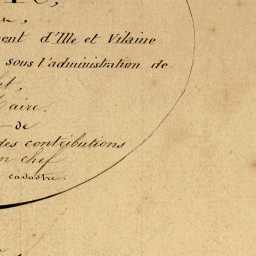 ent d'Ille et Vilaine
sous l'administration de
aire.
de
des contributions
en chef
cadastre.